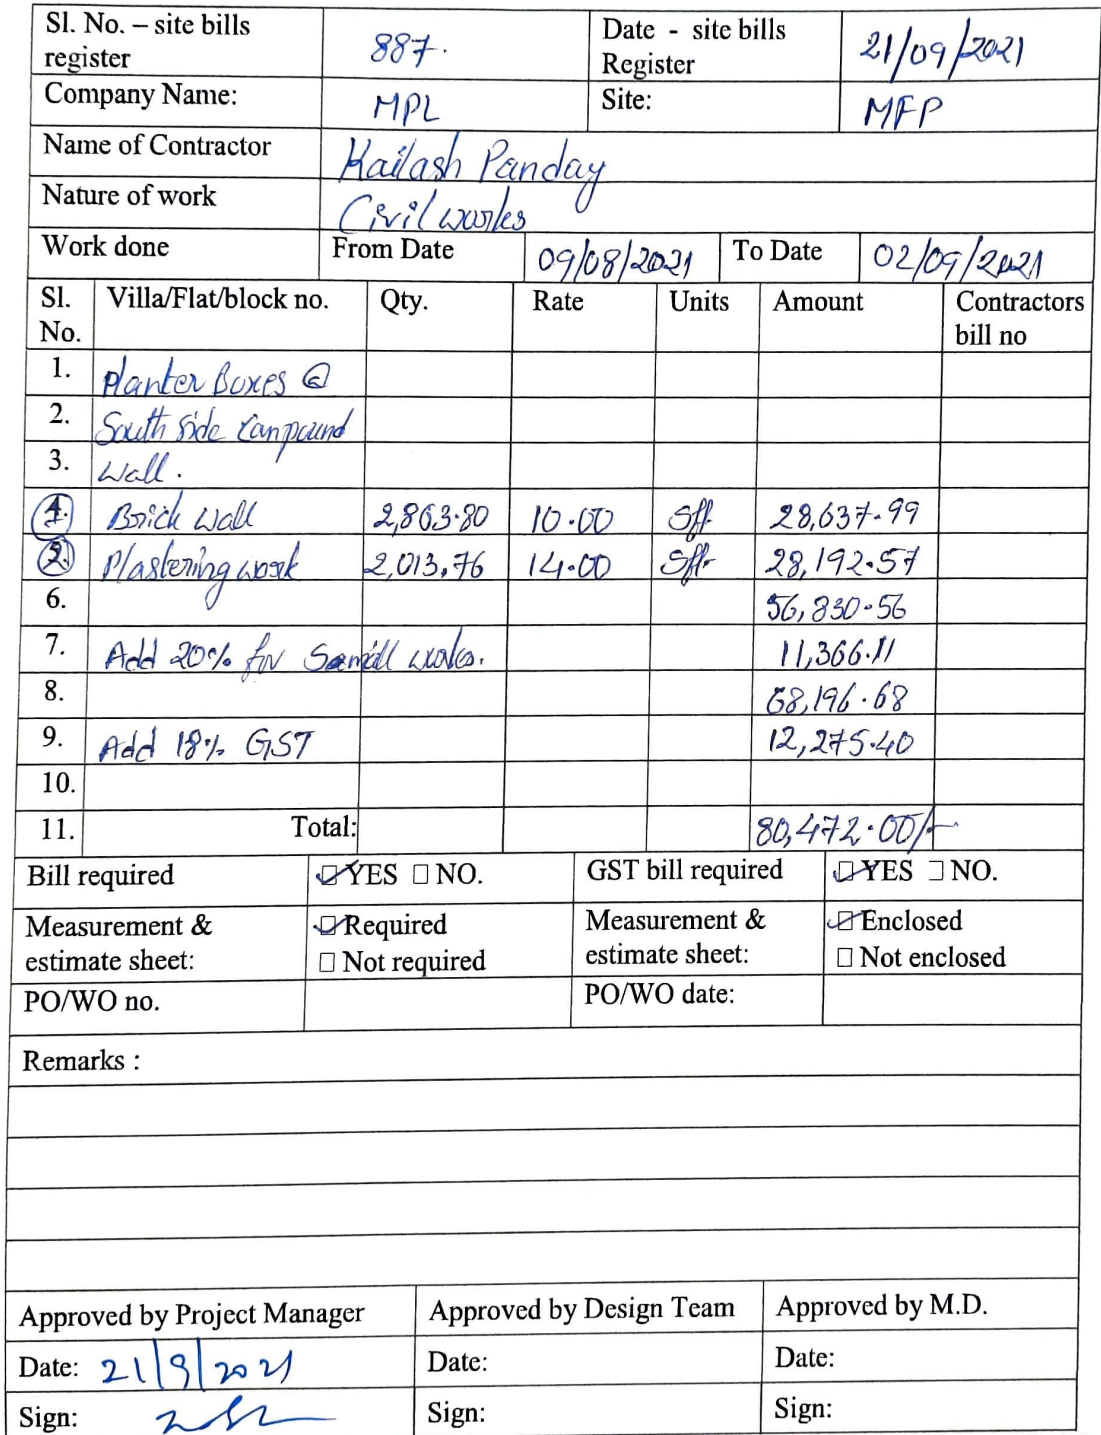 Sl. No. – site bills register 887. Date - site bills Register 21/09/2021
Company Name: MPL Site: MFP
Name of Contractor Kailash Panday
Nature of work Civil works
Work done From Date 09/08/2021 To Date 02/09/2021
Sl. No. Villa/Flat/block no. Qty. Rate Units Amount Contractors bill no
1. Planter Boxes @
2. South Side Compound
3. Wall.
4. Brick Wall 2,863.80 10.00 Sft. 28,637.99
5. Plastering work 2,013.76 14.00 Sft. 28,192.57
6. 56,830.56
7. Add 20% for Small works. 11,366.11
8. 68,196.68
9. Add 18% GST 12,275.40
10.
11. Total: 80,472.00/-
Bill required ☑ YES □ NO. GST bill required ☑ YES □ NO.
Measurement & estimate sheet: ☑ Required □ Not required Measurement & estimate sheet: ☑ Enclosed □ Not enclosed
PO/WO no. PO/WO date:
Remarks :
Approved by Project Manager Approved by Design Team Approved by M.D.
Date: 21/9/2021 Date: Date:
Sign: Sign: Sign: